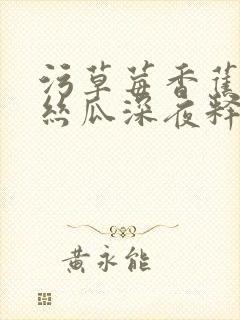 污草莓香蕉
丝瓜深夜释
黄永能